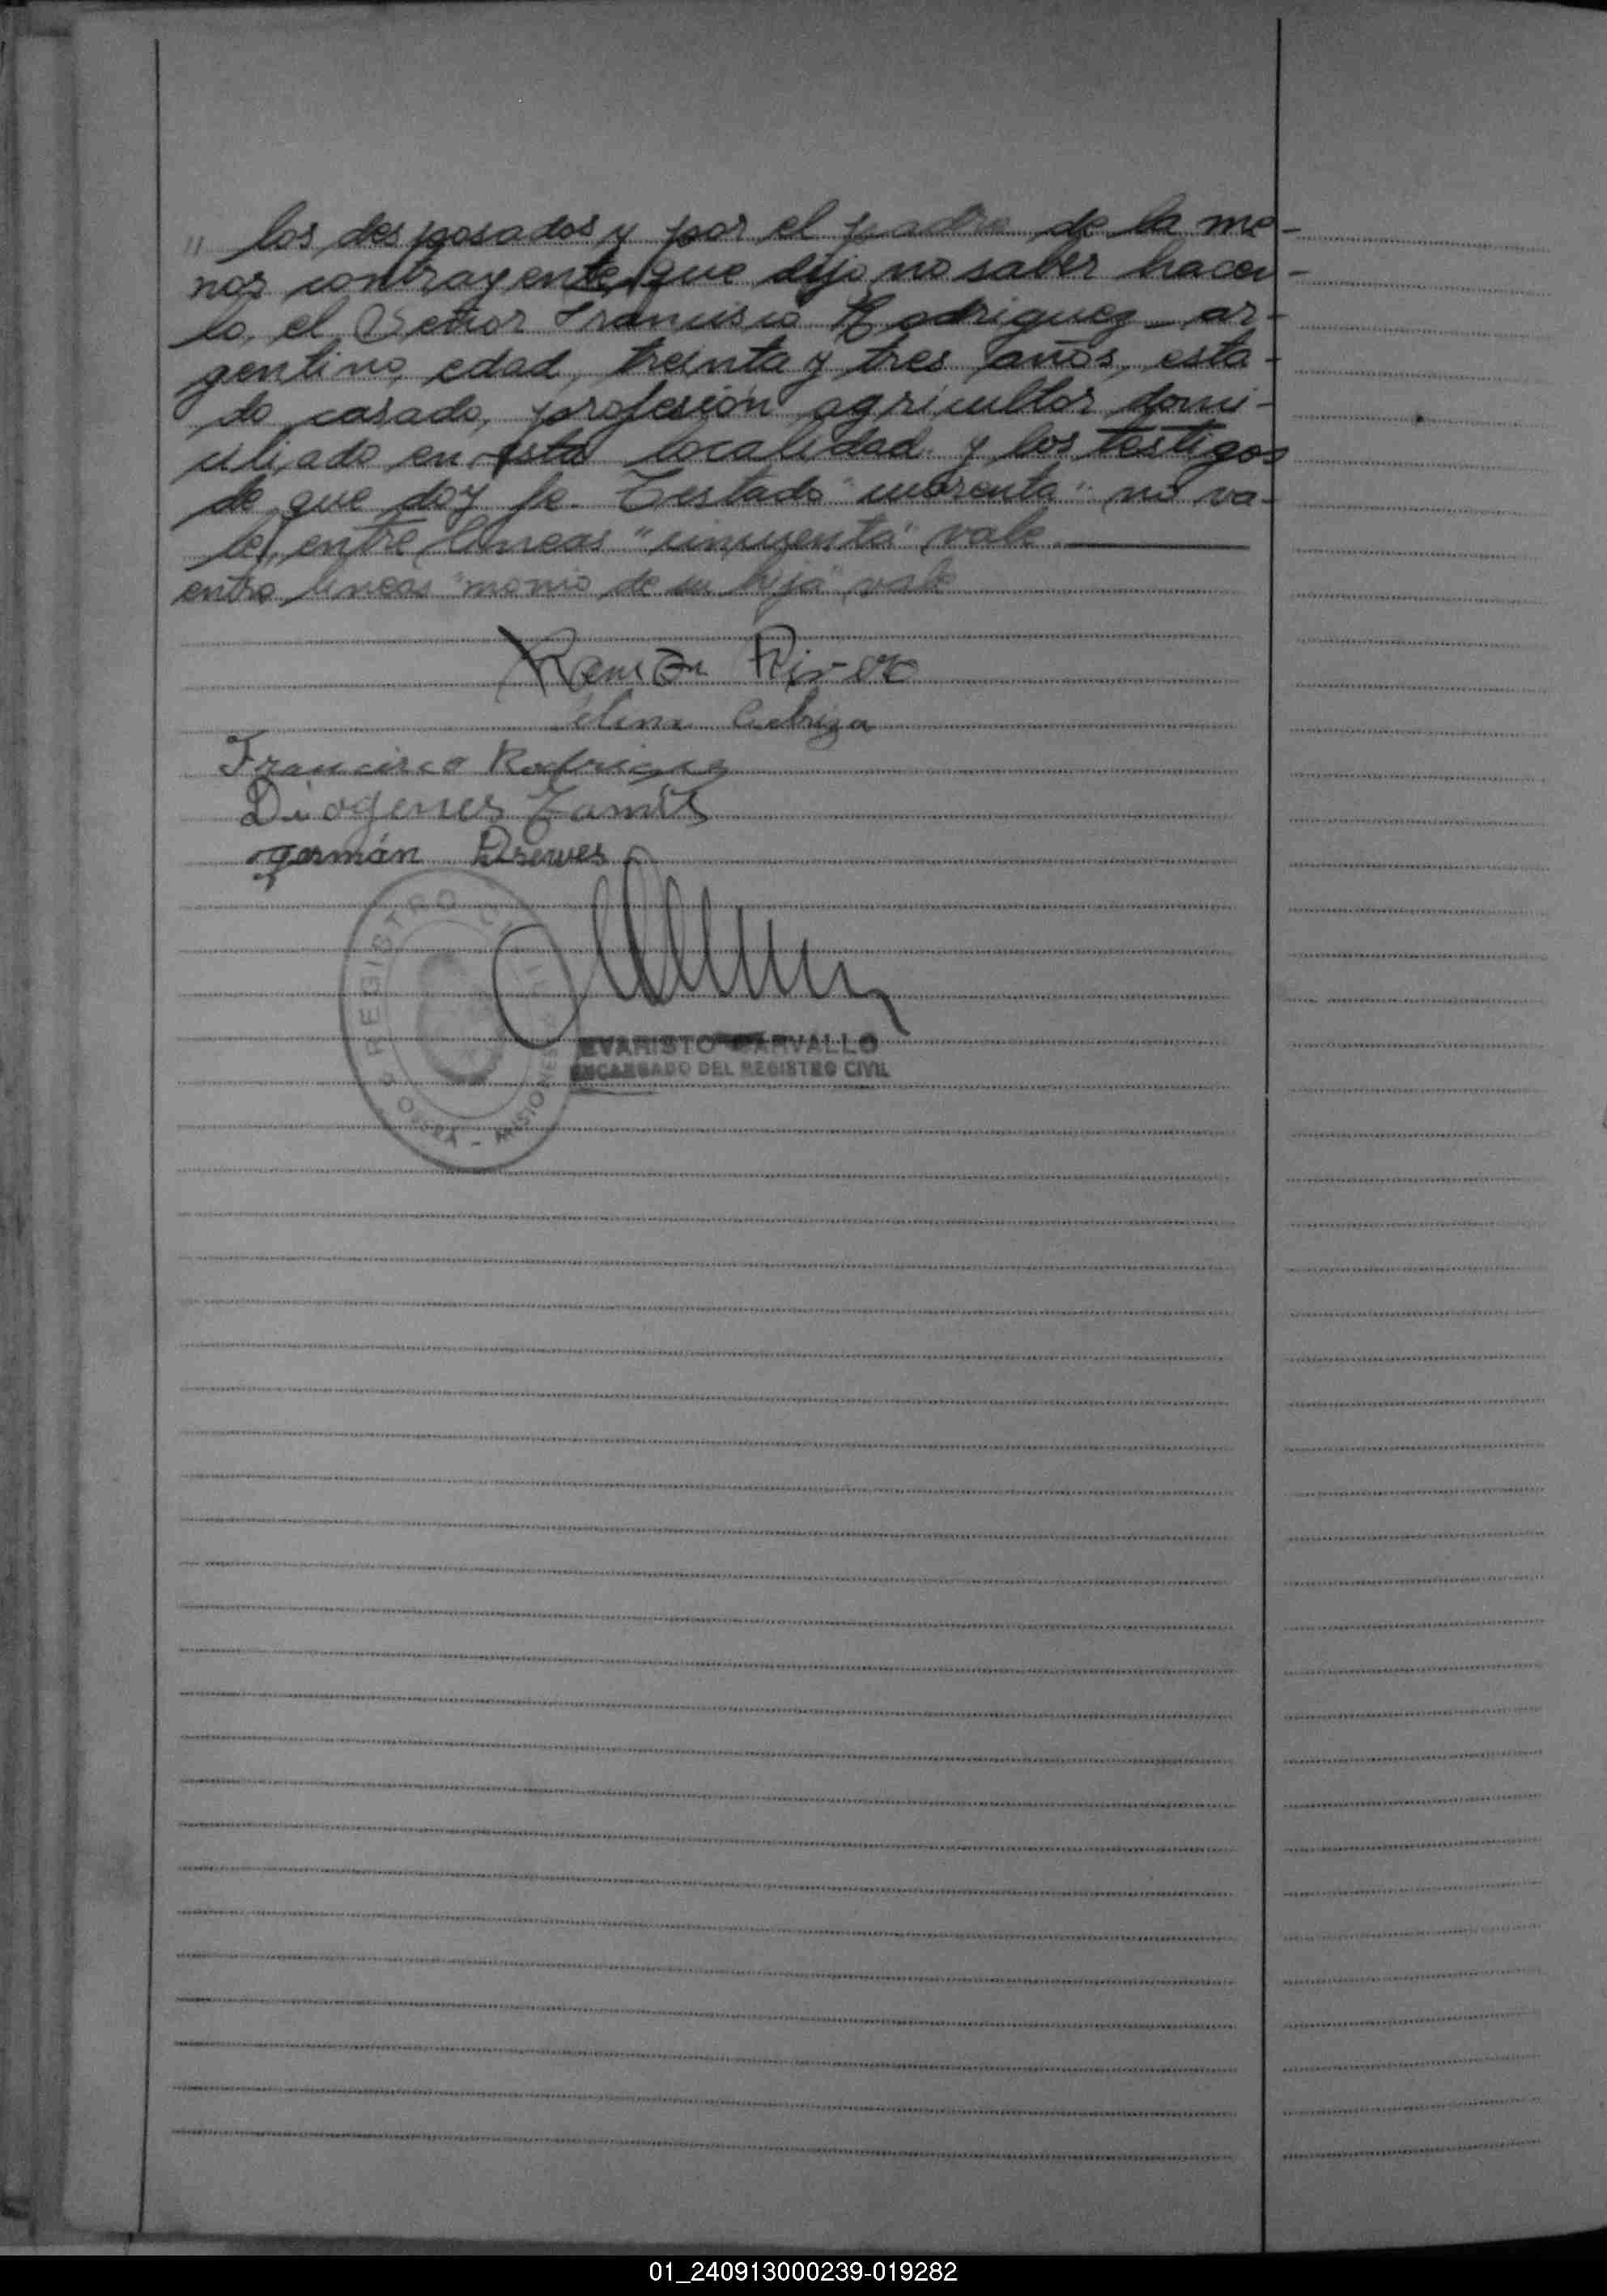 " los desposados y por el padre de la me-
nor contrayente, que dijo no saber hacer-
lo, el Señor Francisco Rodriguez - ar-
gentino, edad, treinta y tres años, esta-
do casado, profesión agricultor domi-
ciliado en esta localidad y los testigos
de que doy fe. Testado "cuarenta" no va-
le, entre lineas "cincuenta" vale
entre lineas "monio de su hija" vale
Ramón
Francisco Rodriguez
Diogenes
germán
REGISTRO
OBERA - MISIONES
EVARISTO CARVALLO
ENCARGADO DEL REGISTRO CIVIL
01_240913000239-019282